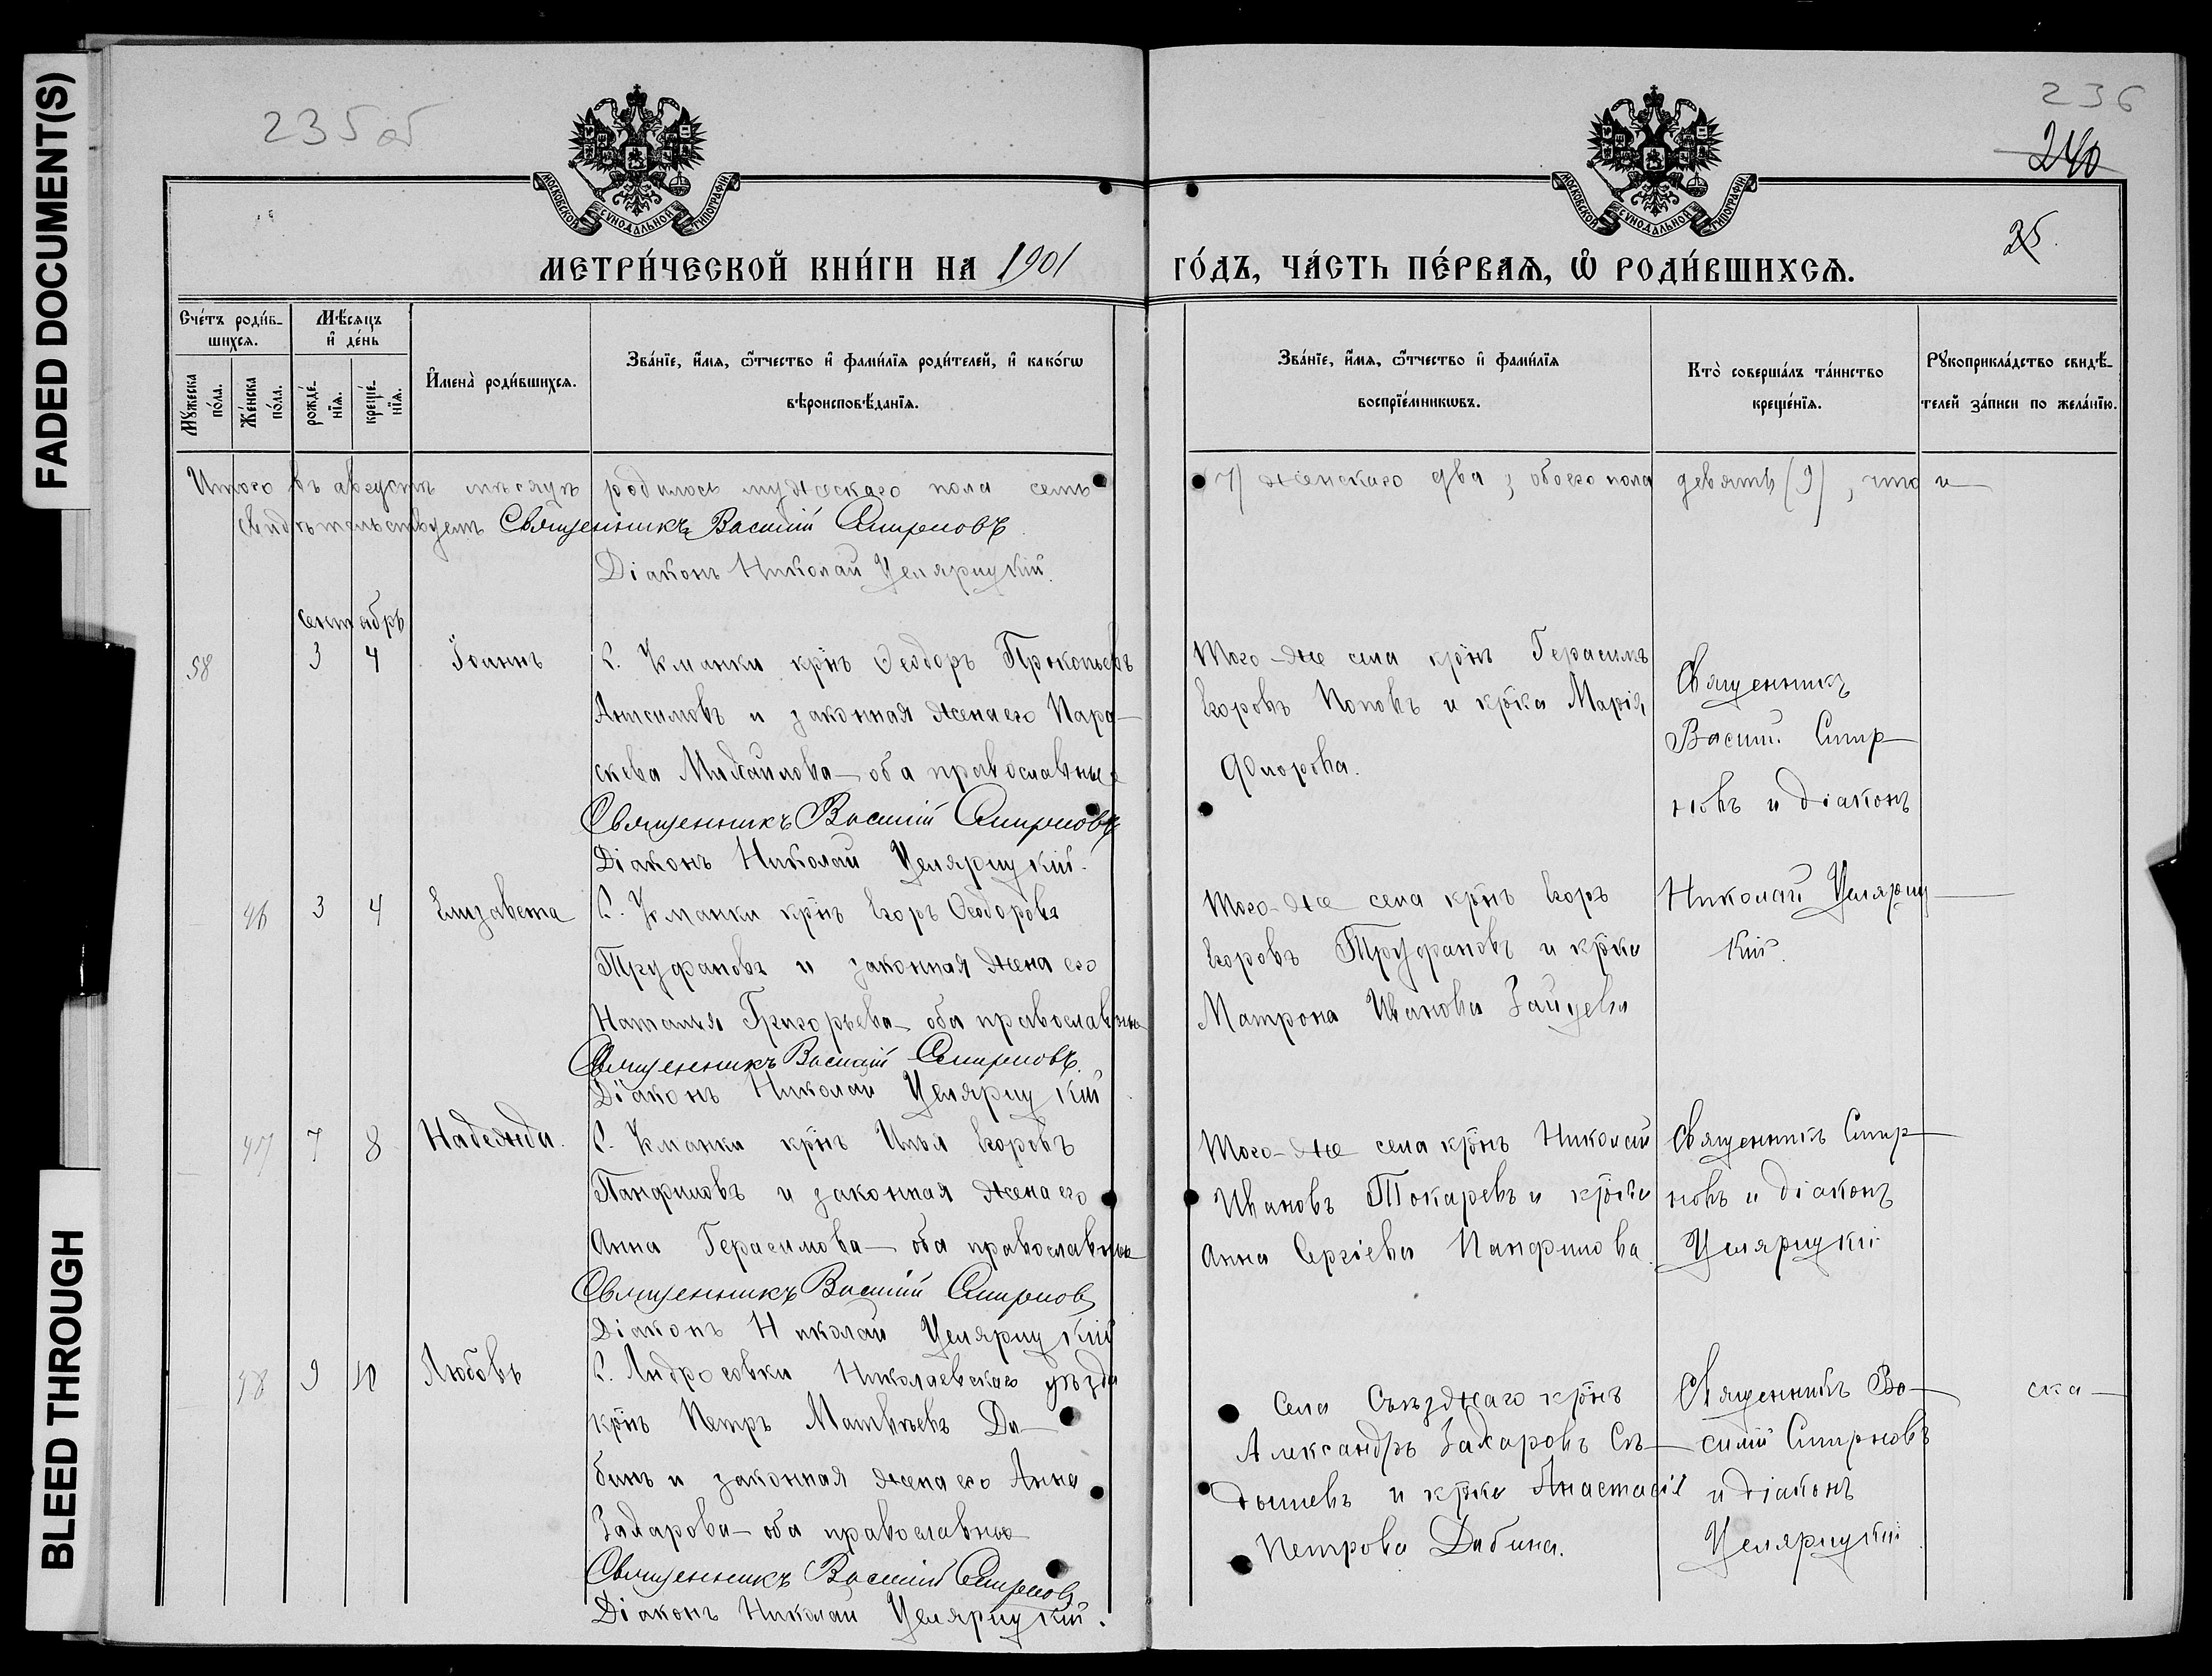 FADED DOCUMENT(S)
BLEED THROUGH
235 об
236
240
25.
МОСКОВСКОЙ СУНОДАЛЬНОЙ ТИПОГРАФІИ
МОСКОВСКОЙ СУНОДАЛЬНОЙ ТИПОГРАФІИ
МЕТРИ́ЧЕСКОЙ КНИ́ГИ НА 1901 ГО́ДЪ, ЧА́СТЬ ПЕ́РВАѦ, Ѡ҆ РОДИ́ВШИХСѦ.
Сче́тъ роди́в-
шихсѧ.
Мѣ́сѧцъ
и҆ де́нь
Мꙋ́жеска
по́ла.
Же́нска
по́ла.
рожде́-
нїѧ.
креще́-
нїѧ.
И҆мена̀ роди́вшихсѧ.
Зва́нїе, и҆́мѧ, ѻ҆́тчество и҆ фами́лїѧ роди́телей, и҆ како́гѡ
вѣроисповѣ́данїѧ.
Зва́нїе, и҆́мѧ, ѻ҆́тчество и҆ фами́лїѧ
воспрїе́мникѡвъ.
Кто̀ соверша́лъ та́инство
креще́нїѧ.
Рꙋкоприкла́дство свидѣ́-
телей за́писи по жела́нїю.
Итого въ августѣ мѣсяцѣ родилось мужескаго пола семь (7) женскаго два; обоего пола девять (9), что и
свидѣтельствуемъ Священникъ Василій Смирновъ
Діаконъ Николай Целярицкій.
сентябрь
58 3 4 Іоаннъ
С. Кманки крн҃ъ Ѳеодоръ Прокопьевъ
Анисимовъ и законная жена его Пара-
скева Михаилова - оба православные
Священникъ Василій Смирновъ
Діаконъ Николай Целярицкій.
Того-же села крн҃ъ Герасимъ
Егоровъ Поповъ и кр҃ка Марія
Флорова.
Священникъ
Васил. Смир-
новъ и діаконъ
Николай Целяриц-
кій.
46 3 4 Елизавета
С. Кманки крн҃ъ Егоръ Ѳеодоровъ
Труфановъ и законная жена его
Наталья Григорьева - оба православные
Священникъ Василій Смирновъ.
Діаконъ Николай Целярицкій
Того-же села крн҃ъ Егоръ
Егоровъ Труфановъ и кр҃ка
Матрона Иванова Зайцева
47 7 8 Надежда.
С. Кманки крн҃ъ Илья Егоровъ
Панфиловъ и законная жена его
Анна Герасимова - оба православные
Священникъ Василій Смирновъ
Діаконъ Николай Целярицкій
Того-же села крн҃ъ Николай
Ивановъ Токаревъ и кр҃ка
Анна Сергіева Панфилова.
Священникъ Смир-
новъ и діаконъ
Целярицкій
48 9 10 Любовь
С. Андросовки Николаевскаго уѣзда
крн҃ъ Петръ Матвѣевъ Да-
бинъ и законная жена его Анна
Захарова - оба православные
Священникъ Василій Смирновъ
Діаконъ Николай Целярицкій.
Села Съѣзжаго крн҃ъ
Александръ Захаровъ Сѣ-
дышевъ и кр҃ка Анастасія
Петрова Дабина.
Священникъ Ва-
силій Смирновъ
и діаконъ
Целярицкій